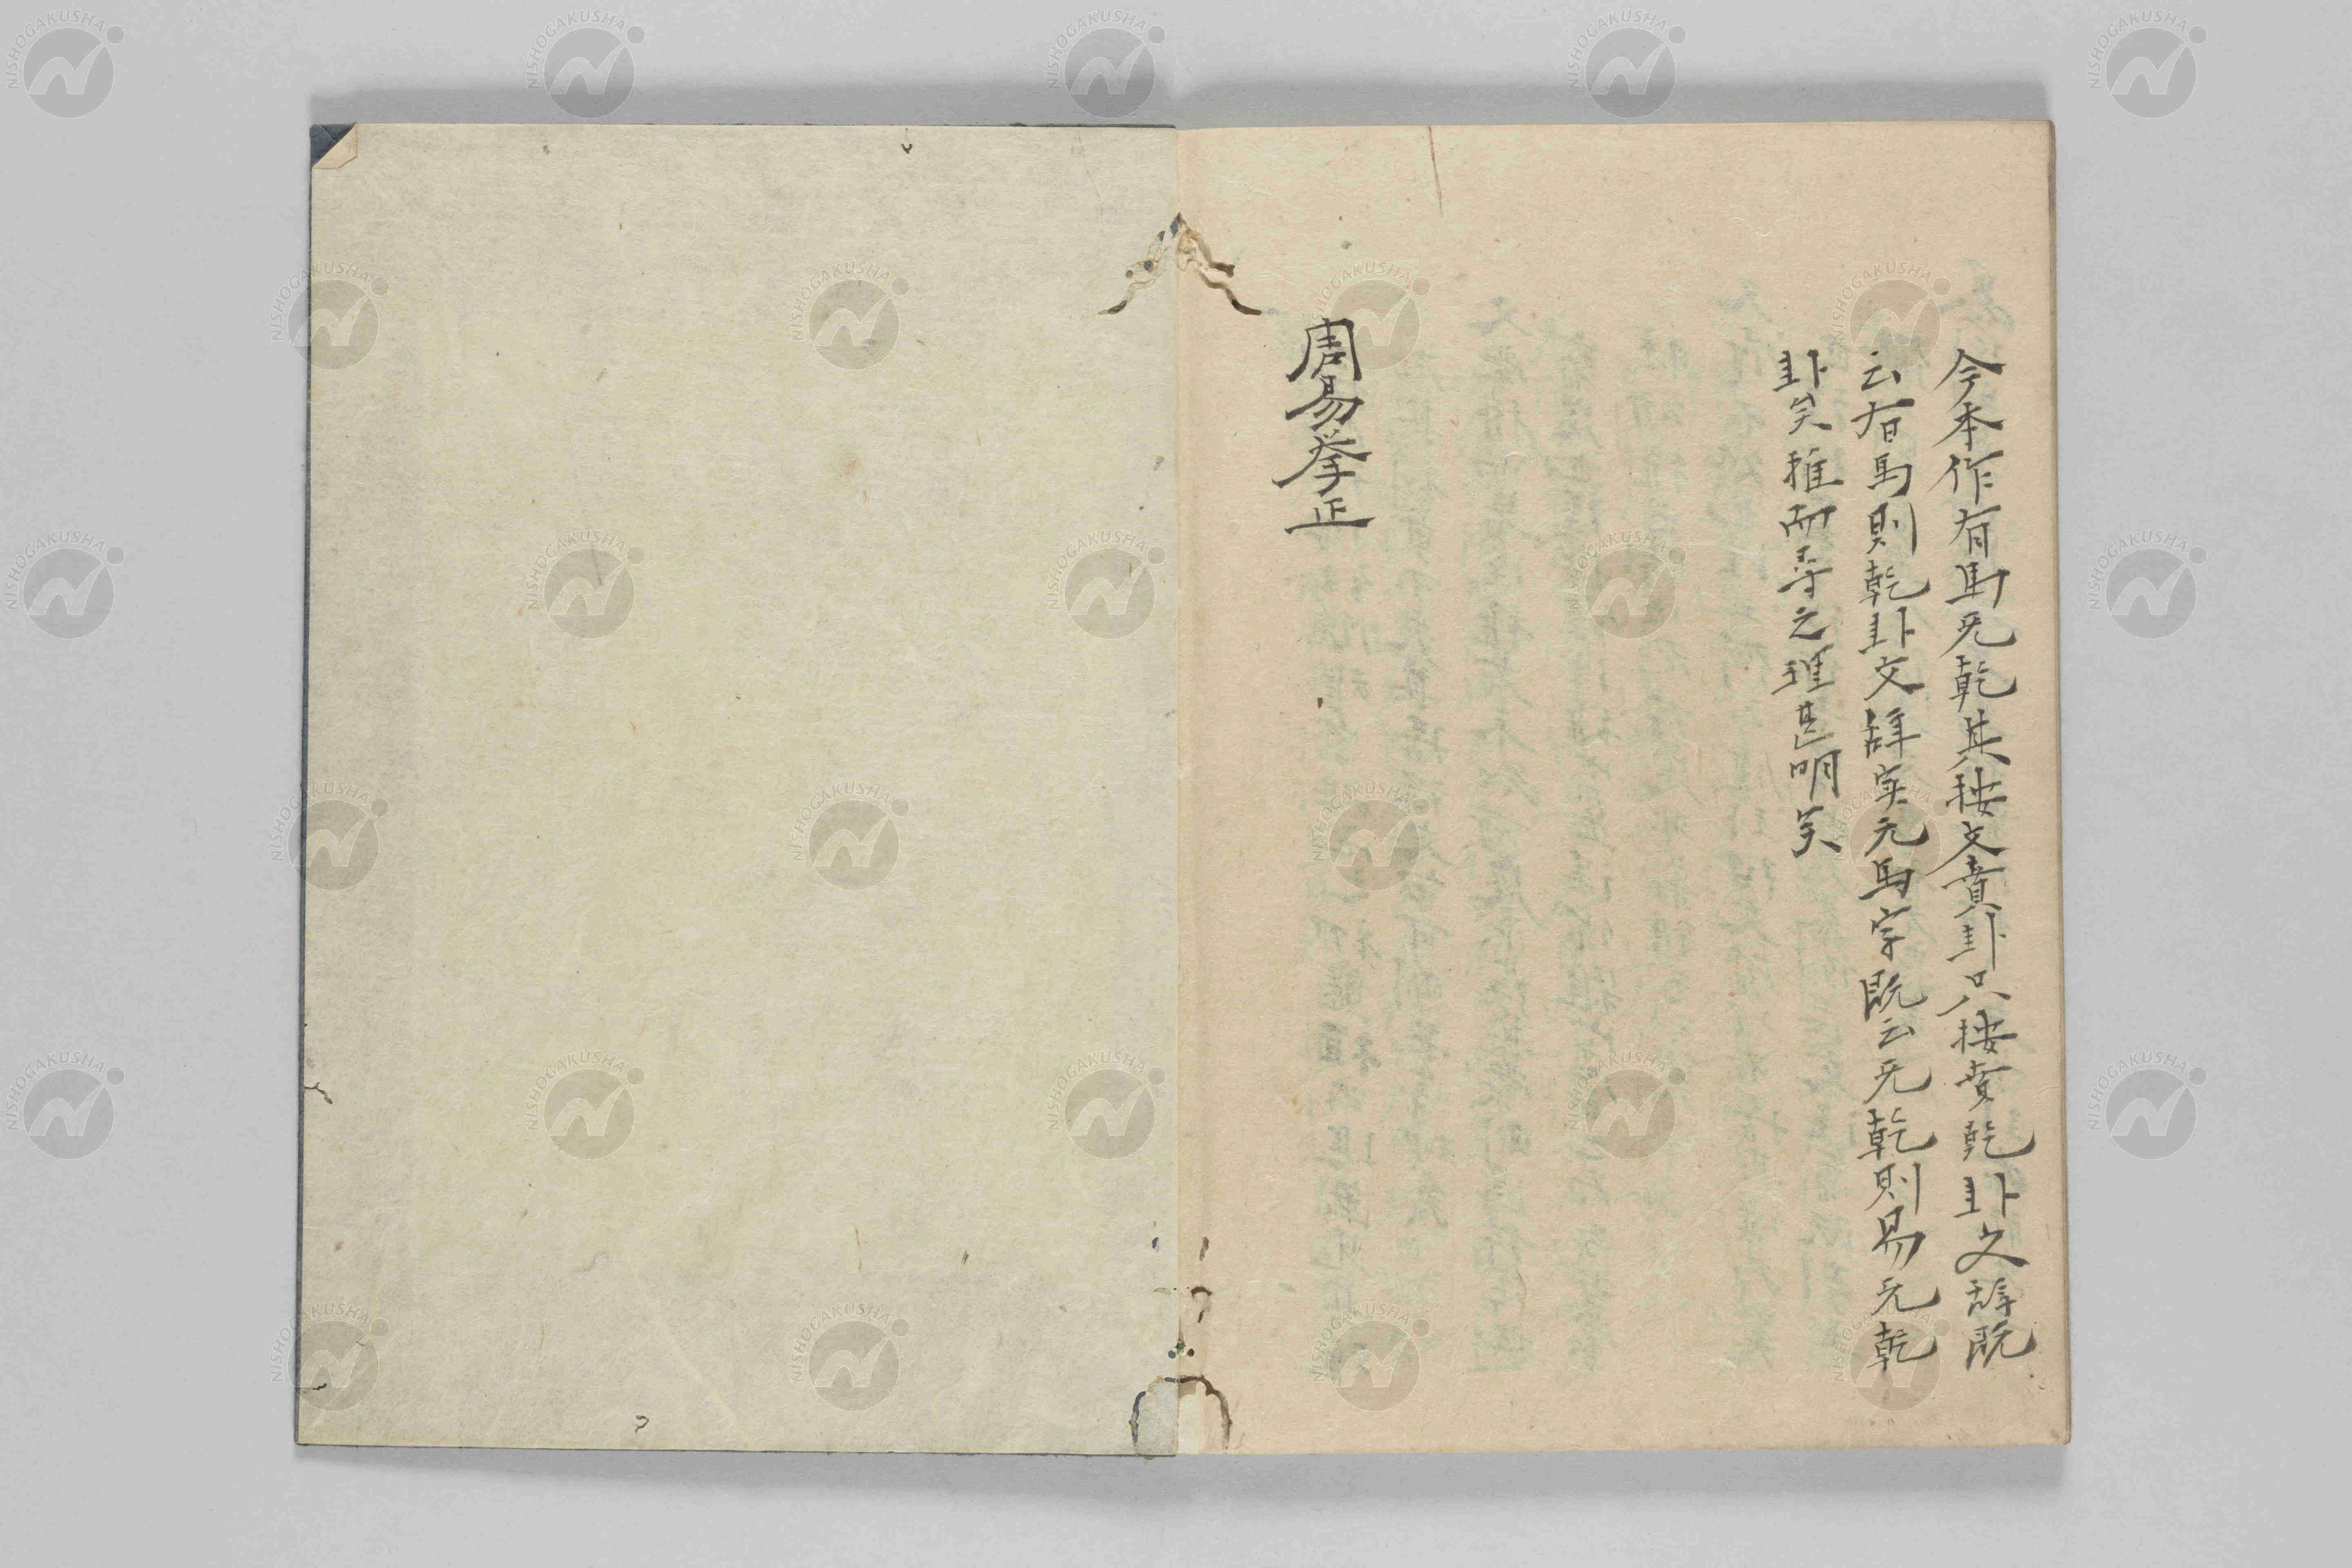 今本作有馬无乾其按文賁卦只按賁乾卦文辞既
云有馬則乾卦文辞実无馬字既云无乾則易无乾
卦矣推而尋之理甚明矣
周易挙正
NISHOGAKUSHA